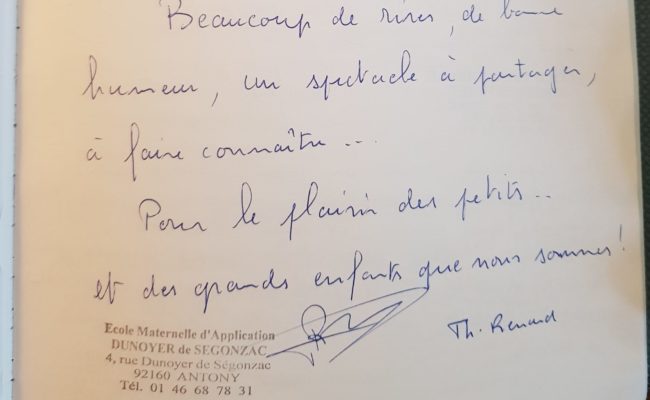 Beaucoup de rires, de bonne
humeur, un spectacle à partager,
à faire connaître...
Pour le plaisir des petits..
et des grands enfants que nous sommes!
Th. Renard
Ecole Maternelle d'Application
DUNOYER de SEGONZAC
4, rue Dunoyer de Ségonzac
92160 ANTONY
Tél. 01 46 68 78 31